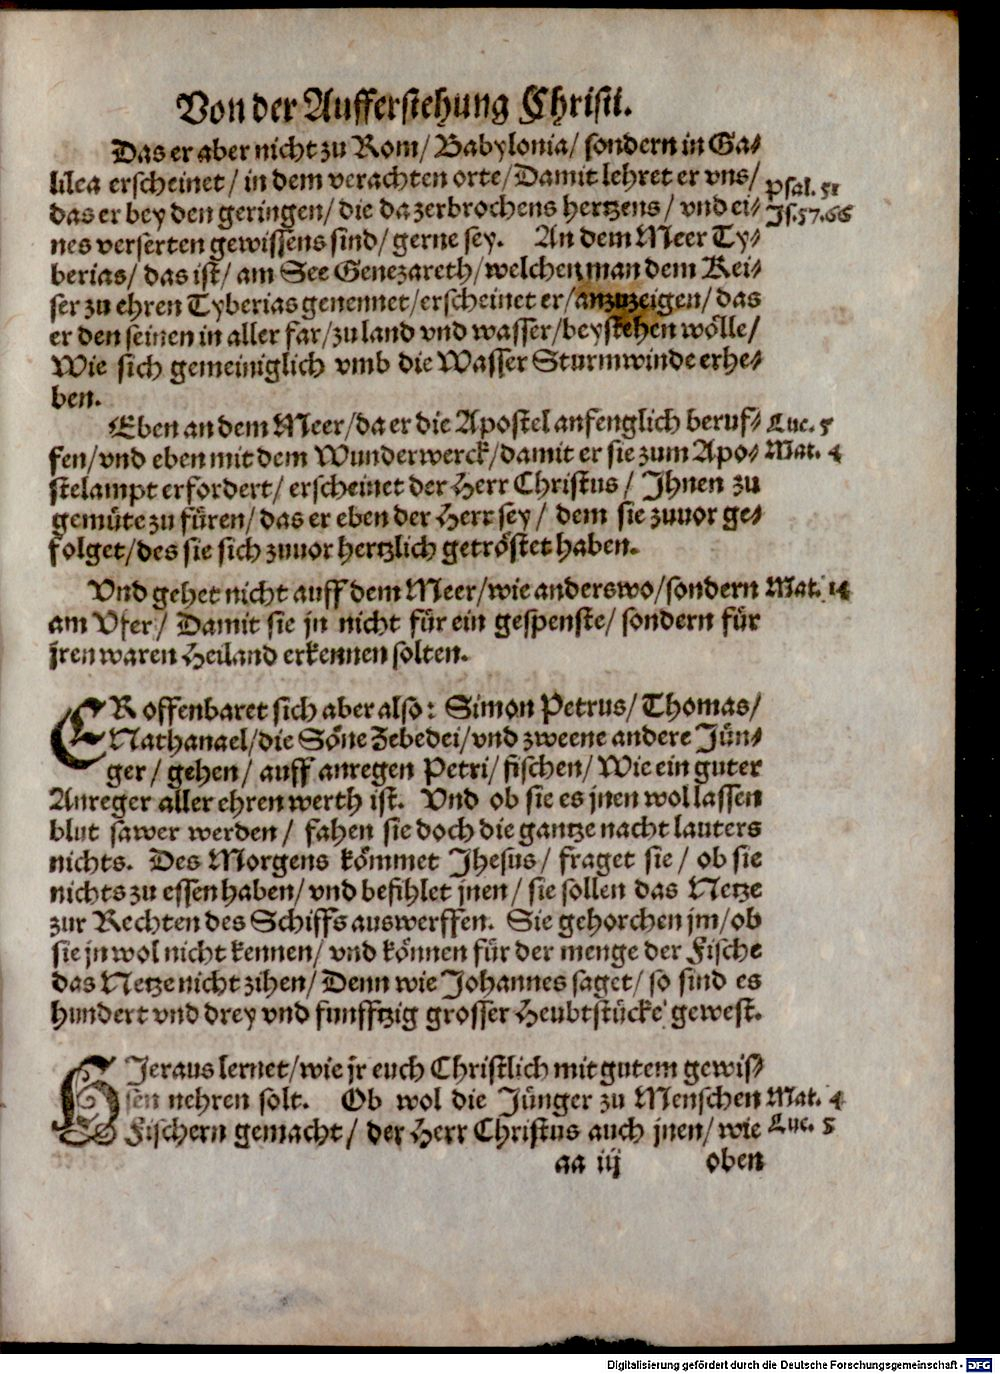 Von der Aufferstehung Christi.
Das er aber nicht zu Rom/ Babylonia/ sondern in Ga-
lilea erscheinet/ in dem verachten orte/ Damit lehret er vns/ Psal. 51
das er bey den geringen/ die da zerbrochens hertzens/ vnd ei- Js. 57. 66
nes verserten gewissens sind/ gerne sey. An dem Meer Ty-
berias/ das ist/ am See Genezareth/ welchen man dem Kei-
ser zu ehren Tyberias genennet/ erscheinet er/ anzuzeigen/ das
er den seinen in aller far/ zu land vnd wasser/ beystehen wölle/
Wie sich gemeiniglich vmb die Wasser Sturmwinde erhe-
ben.
Eben an dem Meer/ da er die Apostel anfenglich beruf- Luc. 5
fen/ vnd eben mit dem Wunderwerck/ damit er sie zum Apo- Mat. 4
stelampt erfordert/ erscheinet der Herr Christus/ Jhnen zu
gemüte zu füren/ das er eben der Herr sey/ dem sie zuuor ge-
folget/ des sie sich zuuor hertzlich getröstet haben.
Vnd gehet nicht auff dem Meer/ wie anderswo/ sondern Mat. 14
am Vfer/ Damit sie jn nicht für ein gespenste/ sondern für
jren waren Heiland erkennen solten.
ER offenbaret sich aber also: Simon Petrus/ Thomas/
Nathanael/ die Söne Zebedei/ vnd zweene andere Jün-
ger/ gehen/ auff anregen Petri/ fischen/ Wie ein guter
Anreger aller ehren werth ist. Vnd ob sie es jnen wol lassen
blut sawer werden/ fahen sie doch die gantze nacht lauters
nichts. Des Morgens kömmet Jhesus/ fraget sie/ ob sie
nichts zu essen haben/ vnd befihlet jnen/ sie sollen das Netze
zur Rechten des Schiffs auswerffen. Sie gehorchen jm/ ob
sie jn wol nicht kennen/ vnd können für der menge der Fische
das Netze nicht zihen/ Denn wie Johannes saget/ so sind es
hundert vnd drey vnd funfftzig grosser Heubtstücke gewest.
HJeraus lernet/ wie jr euch Christlich mit gutem gewis-
sen nehren solt. Ob wol die Jünger zu Menschen Mat. 4
Fischern gemacht/ der Herr Christus auch jnen/ wie Luc. 5
aa iij oben
Digitalisierung gefördert durch die Deutsche Forschungsgemeinschaft - DFG